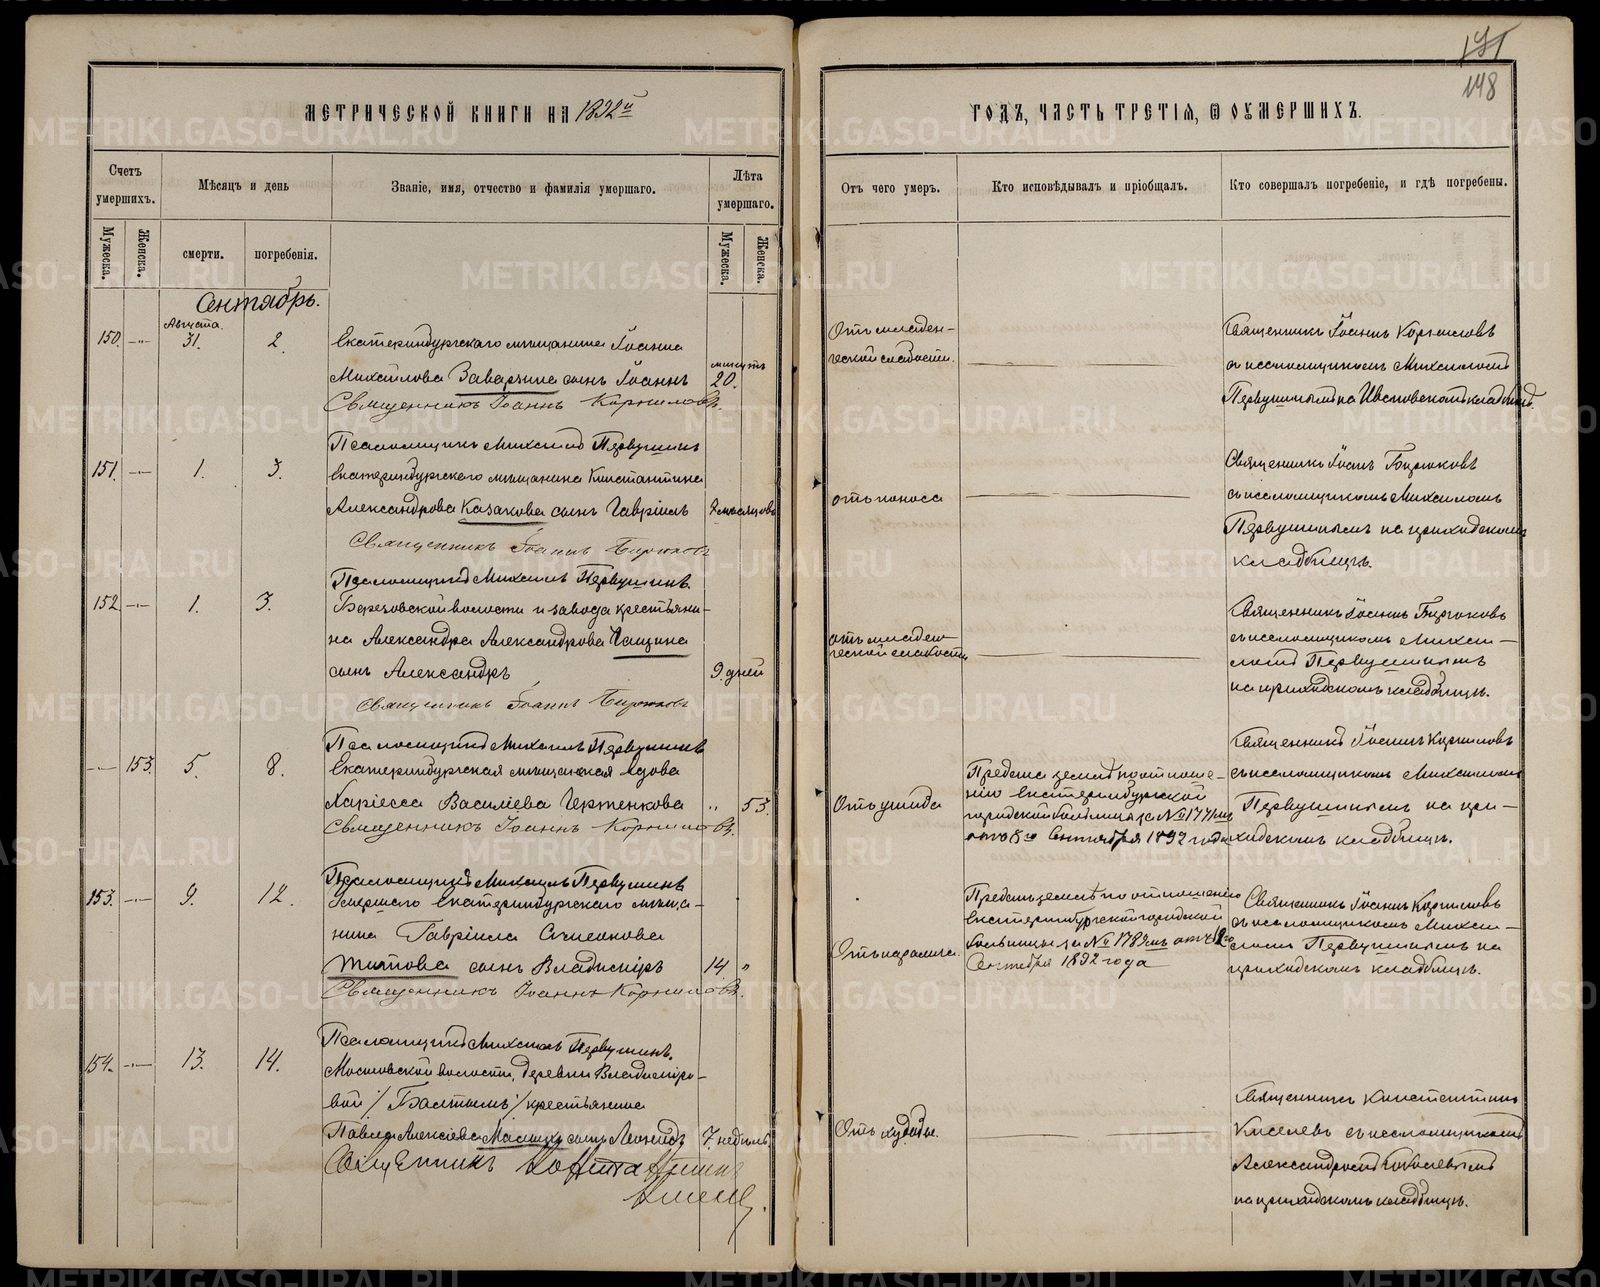 191
148
МЕТРИЧЕСКОЙ КНИГИ НА 1892й
ГОДЪ, ЧАСТЬ ТРЕТІЯ, Ѿ ОУМЕРШИХЪ.
Счетъ умершихъ.
Мѣсяцъ и день
Званіе, имя, отчество и фамилія умершаго.
Лѣта умершаго.
Отъ чего умеръ.
Кто исповѣдывалъ и пріобщалъ.
Кто совершалъ погребеніе, и гдѣ погребены.
Мужеска.
Женска.
смерти.
погребенія.
Мужеска.
Женска.
Сентябрь.
150.
Августа 31.
2.
Екатеринбургскаго мѣщанина Іоанна
Михайлова Заварзина сынъ Іоаннъ
минутъ 20.
Священникъ Іоаннъ Корниловъ.
Псаломщикъ Михаилъ Первушинъ
Отъ младен-
ческой слабости.
Священникъ Іоаннъ Корниловъ
съ псаломщикомъ Михаиломъ
Первушинымъ на Ивановскомъ кладбищѣ.
151.
1.
3.
Екатеринбургскаго мѣщанина Константина
Александрова Казакова сынъ Гавріилъ
мѣсяцовъ
Священникъ Іоаннъ Бирюковъ
Псаломщикъ Михаилъ Первушинъ.
отъ поноса
Священникъ Іоаннъ Бирюковъ
съ псаломщикомъ Михаиломъ
Первушинымъ на приходскомъ
кладбищѣ.
152.
1.
3.
Березовской волости и завода крестьяни-
на Александра Александрова Чащина
сынъ Александръ
9. дней
Священникъ Іоаннъ Бирюковъ
Псаломщикъ Михаилъ Первушинъ
отъ младен
ческой слабости
Священникъ Іоаннъ Бирюковъ
съ псаломщикомъ Михаи-
ломъ Первушинымъ
на приходскомъ кладбищѣ.
153.
5.
8.
Екатеринбургская мѣщанская вдова
Василіева Чертенкова
53.
Священникъ Іоаннъ Корниловъ.
Псаломщикъ Михаилъ Первушинъ
Отъ ушиба
Предана землѣ по отноше-
нію Екатеринбургской
городской больницы за № 1771мъ
отъ 8го Сентября 1892 года
Священникъ Іоаннъ Корниловъ
съ псаломщикомъ Михаиломъ
Первушинымъ на при-
ходскомъ кладбищѣ.
153.
9.
12.
Умершаго Екатеринбургскаго мѣща-
нина Гавріила Симеонова
Титова сынъ Владиміръ
14
Священникъ Іоаннъ Корниловъ.
Псаломщикъ Михаилъ Первушинъ.
Отъ паралича.
Преданъ землѣ по отношенію
Екатеринбургской городской
больницы за № 1789мъ отъ 12го
Сентября 1892 года
Священникъ Іоаннъ Корниловъ
съ псаломщикомъ Михаи-
ломъ Первушинымъ на
приходскомъ кладбищѣ.
154.
13.
14.
Мостовской волости, деревни Владиміро-
вой /Балтымъ/ крестьянина
Павла Алексіева сынъ Леонидъ
7. недѣль
Священникъ Константинъ
Киселевъ.
Отъ худобы.
Священникъ Константинъ
Киселевъ съ псаломщикомъ
Александромъ
на приходскомъ кладбищѣ.
METRIKI.GASO-URAL.RU